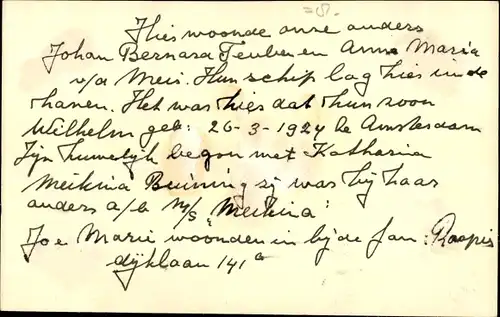 Hier woonde onze ouders
Johan Bernard Teuben en Anna Maria
v/d Meis. Hun schip lag hier in de
haven. Het was hier dat hun zoon
Wilhelm geb: 26-3-1924 te Amsterdam
Zijn huwelijk begon met Katharina
Meikina Buining zij was bij haar
ouders a/b M/S "Meikina"
Joe Marie woonden in bij de fam:
dijklaan 141a